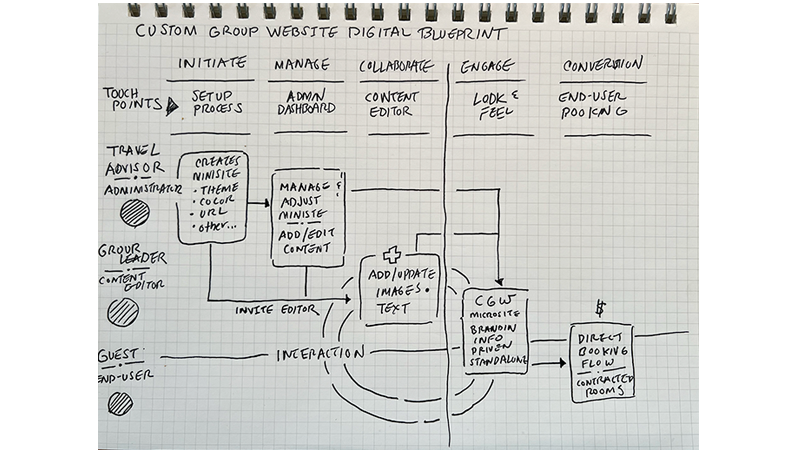 CUSTOM GROUP WEBSITE DIGITAL BLUEPRINT
INITIATE MANAGE COLLABORATE ENGAGE CONVERSION
TOUCH
POINTS
SETUP
PROCESS
ADMIN
DASHBOARD
CONTENT
EDITOR
LOOK &
FEEL
END-USER
BOOKING
TRAVEL
ADVISOR
ADMINISTRATOR
CREATES
MINISITE
• THEME
• COLOR
• URL
• other...
MANAGE &
ADJUST
MINISTE
ADD/EDIT
CONTENT
GROUP
LEADER
CONTENT
EDITOR
ADD/UPDATE
IMAGES •
TEXT
INVITE EDITOR
CGW
MICROSITE
BRANDIN
INFO
DRIVEN
STANDALONE
$
DIRECT
BOOKING
FLOW
CONTRACTED
ROOMS
GUEST:
END-USER
INTERACTION